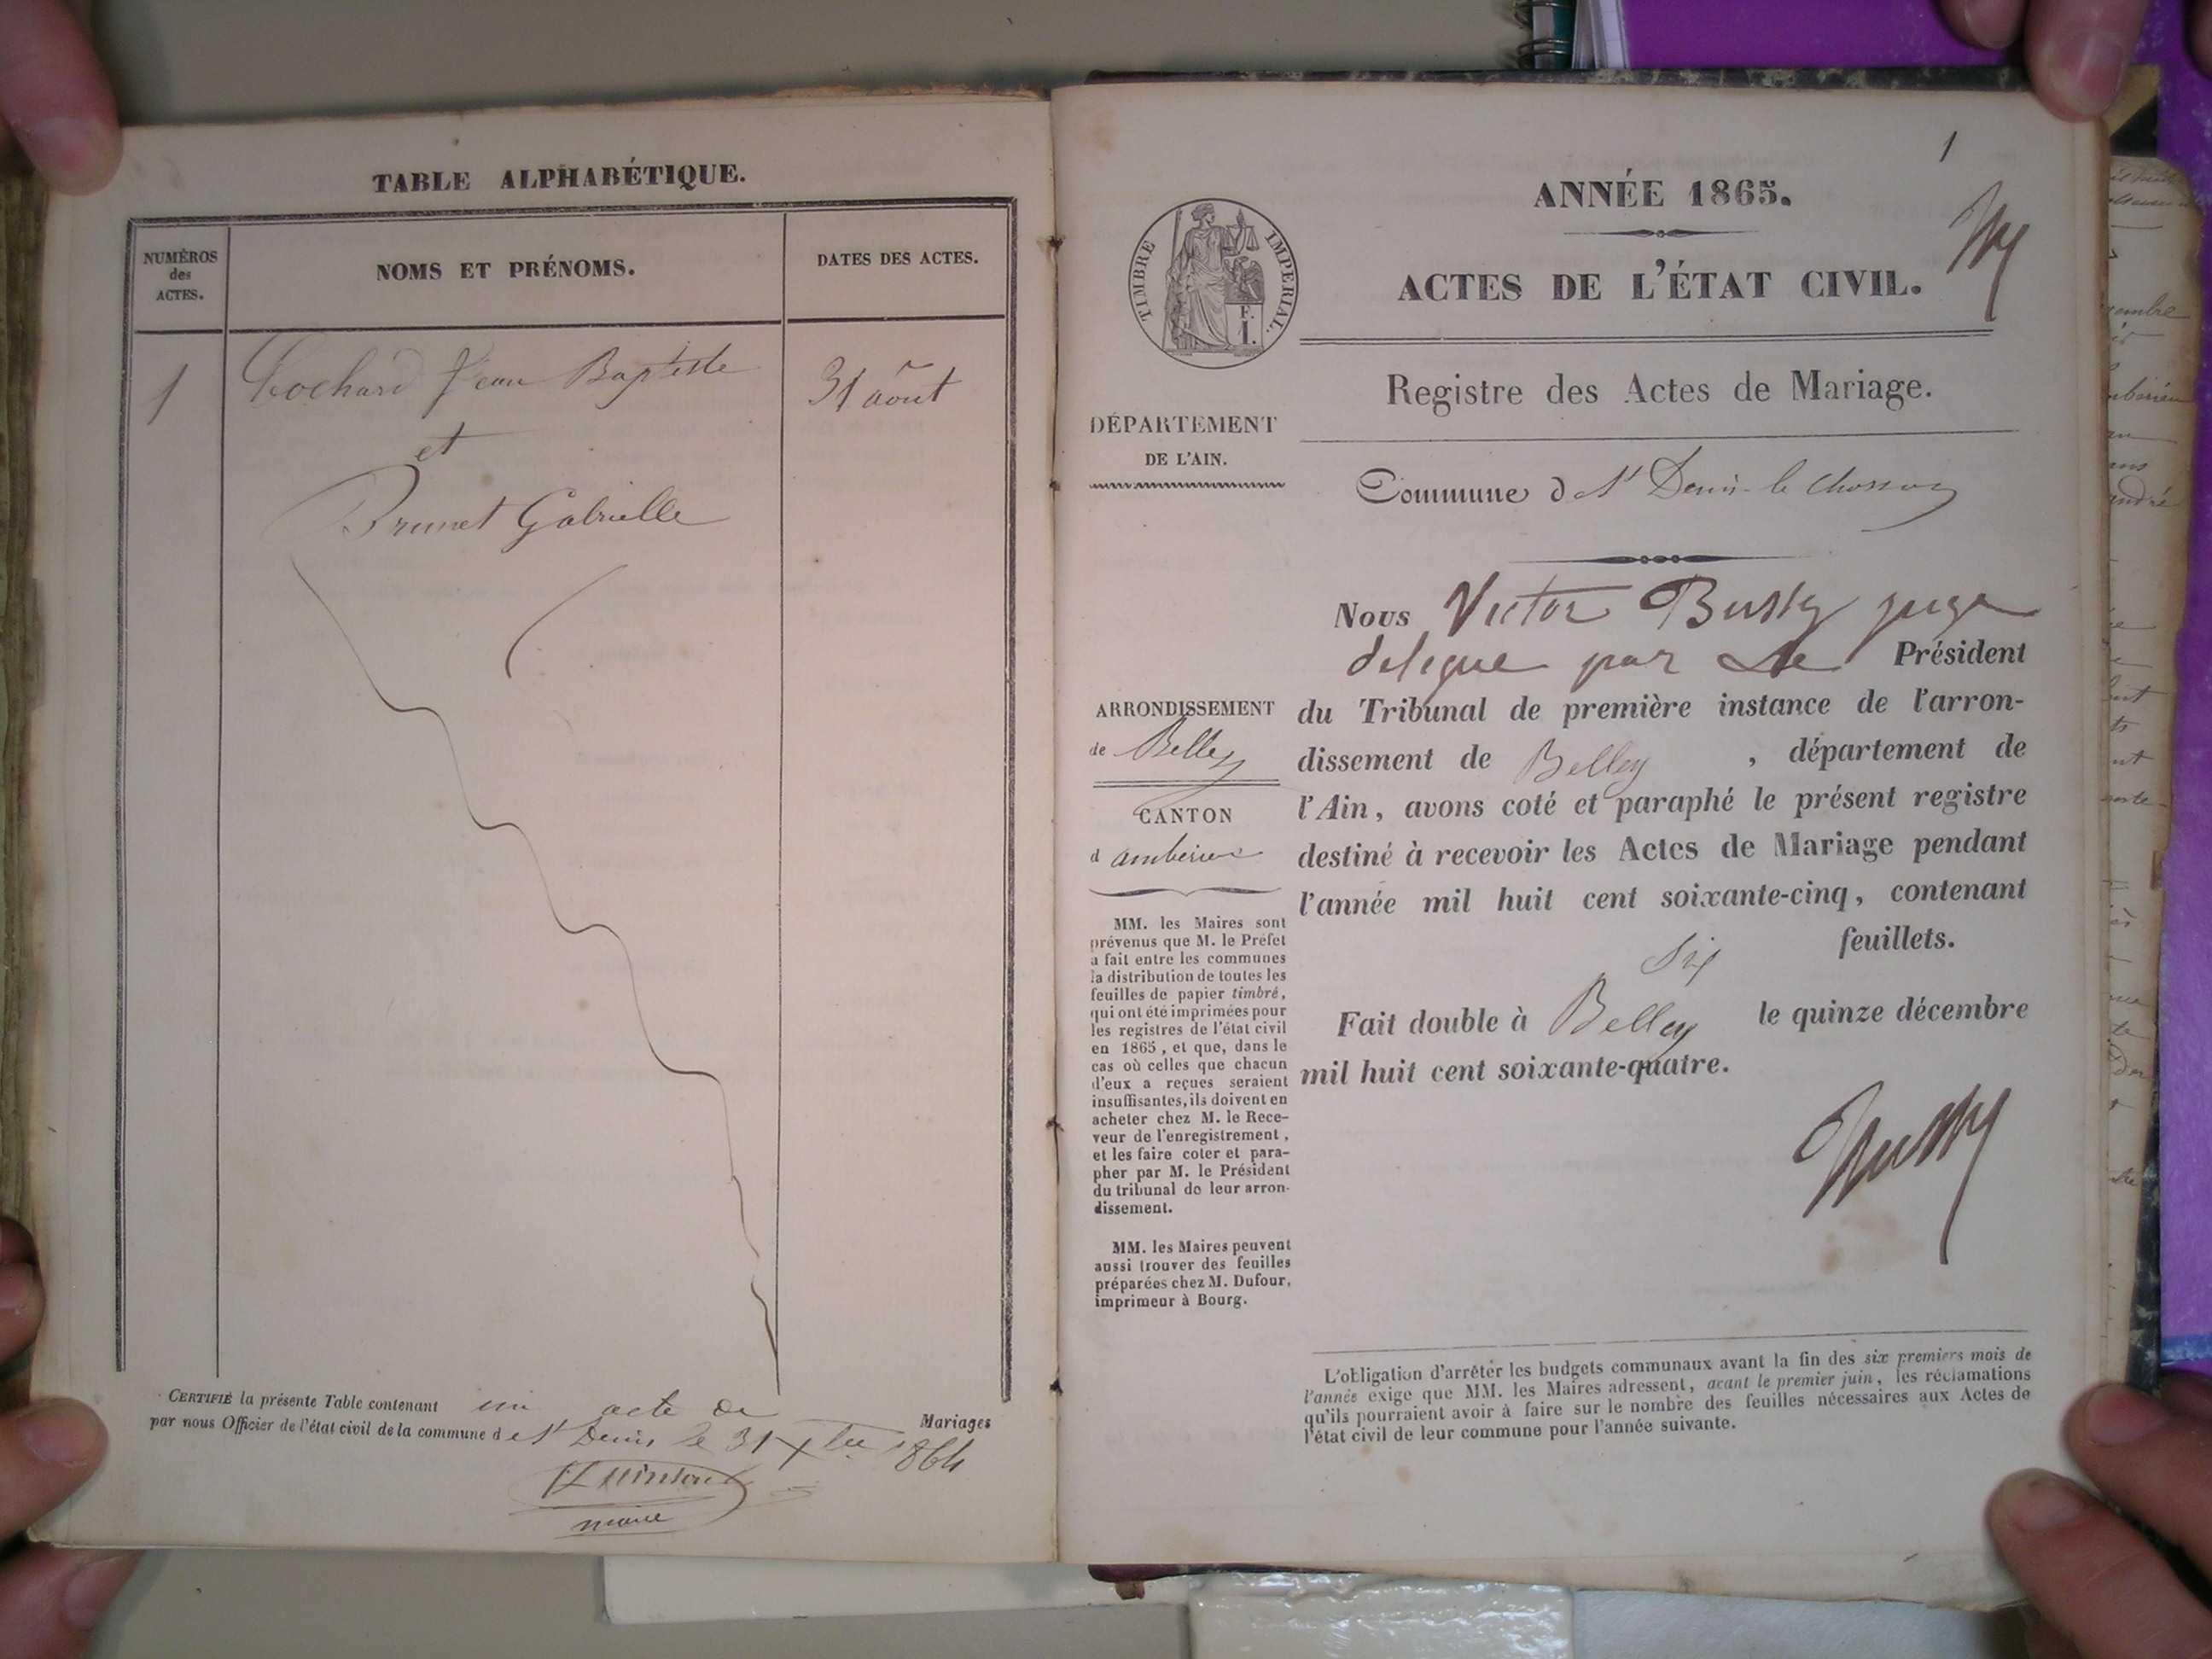 TABLE ALPHABÉTIQUE.
NUMÉROS
des
ACTES.
NOMS ET PRÉNOMS.
DATES DES ACTES.
1
Cochard Jean Baptiste
31 août
et
Brunet Gabrielle
CERTIFIÉ la présente Table contenant un acte de Mariages
par nous Officier de l'état civil de la commune d e St Denis le 31 Xbre 1864
maire
1
ANNÉE 1865.
TIMBRE IMPERIAL.
F.
1.
ACTES DE L'ÉTAT CIVIL.
Registre des Actes de Mariage.
DÉPARTEMENT
DE L'AIN.
Commune d e St Denis le Chosson
Nous Victor Bussy juge
delegue par Le Président
du Tribunal de première instance de l'arron-
dissement de Belley, département de
l'Ain, avons coté et paraphé le présent registre
destiné à recevoir les Actes de Mariage pendant
l'année mil huit cent soixante-cinq, contenant
Six feuillets.
Fait double à Belley le quinze décembre
mil huit cent soixante-quatre.
Bussy
ARRONDISSEMENT
de Belley
CANTON
d'ambérieu
MM. les Maires sont
prévenus que M. le Préfet
a fait entre les communes
la distribution de toutes les
feuilles de papier timbré,
qui ont été imprimées pour
les registres de l'état civil
en 1865, et que, dans le
cas où celles que chacun
d'eux a reçues seraient
insuffisantes, ils doivent en
acheter chez M. le Rece-
veur de l'enregistrement,
et les faire coter et para-
pher par M. le Président
du tribunal de leur arron-
dissement.
MM. les Maires peuvent
aussi trouver des feuilles
préparées chez M. Dufour,
imprimeur à Bourg.
L'obligation d'arrêter les budgets communaux avant la fin des six premiers mois de
l'année exige que MM. les Maires adressent, avant le premier juin, les réclamations
qu'ils pourraient avoir à faire sur le nombre des feuilles nécessaires aux Actes de
l'état civil de leur commune pour l'année suivante.